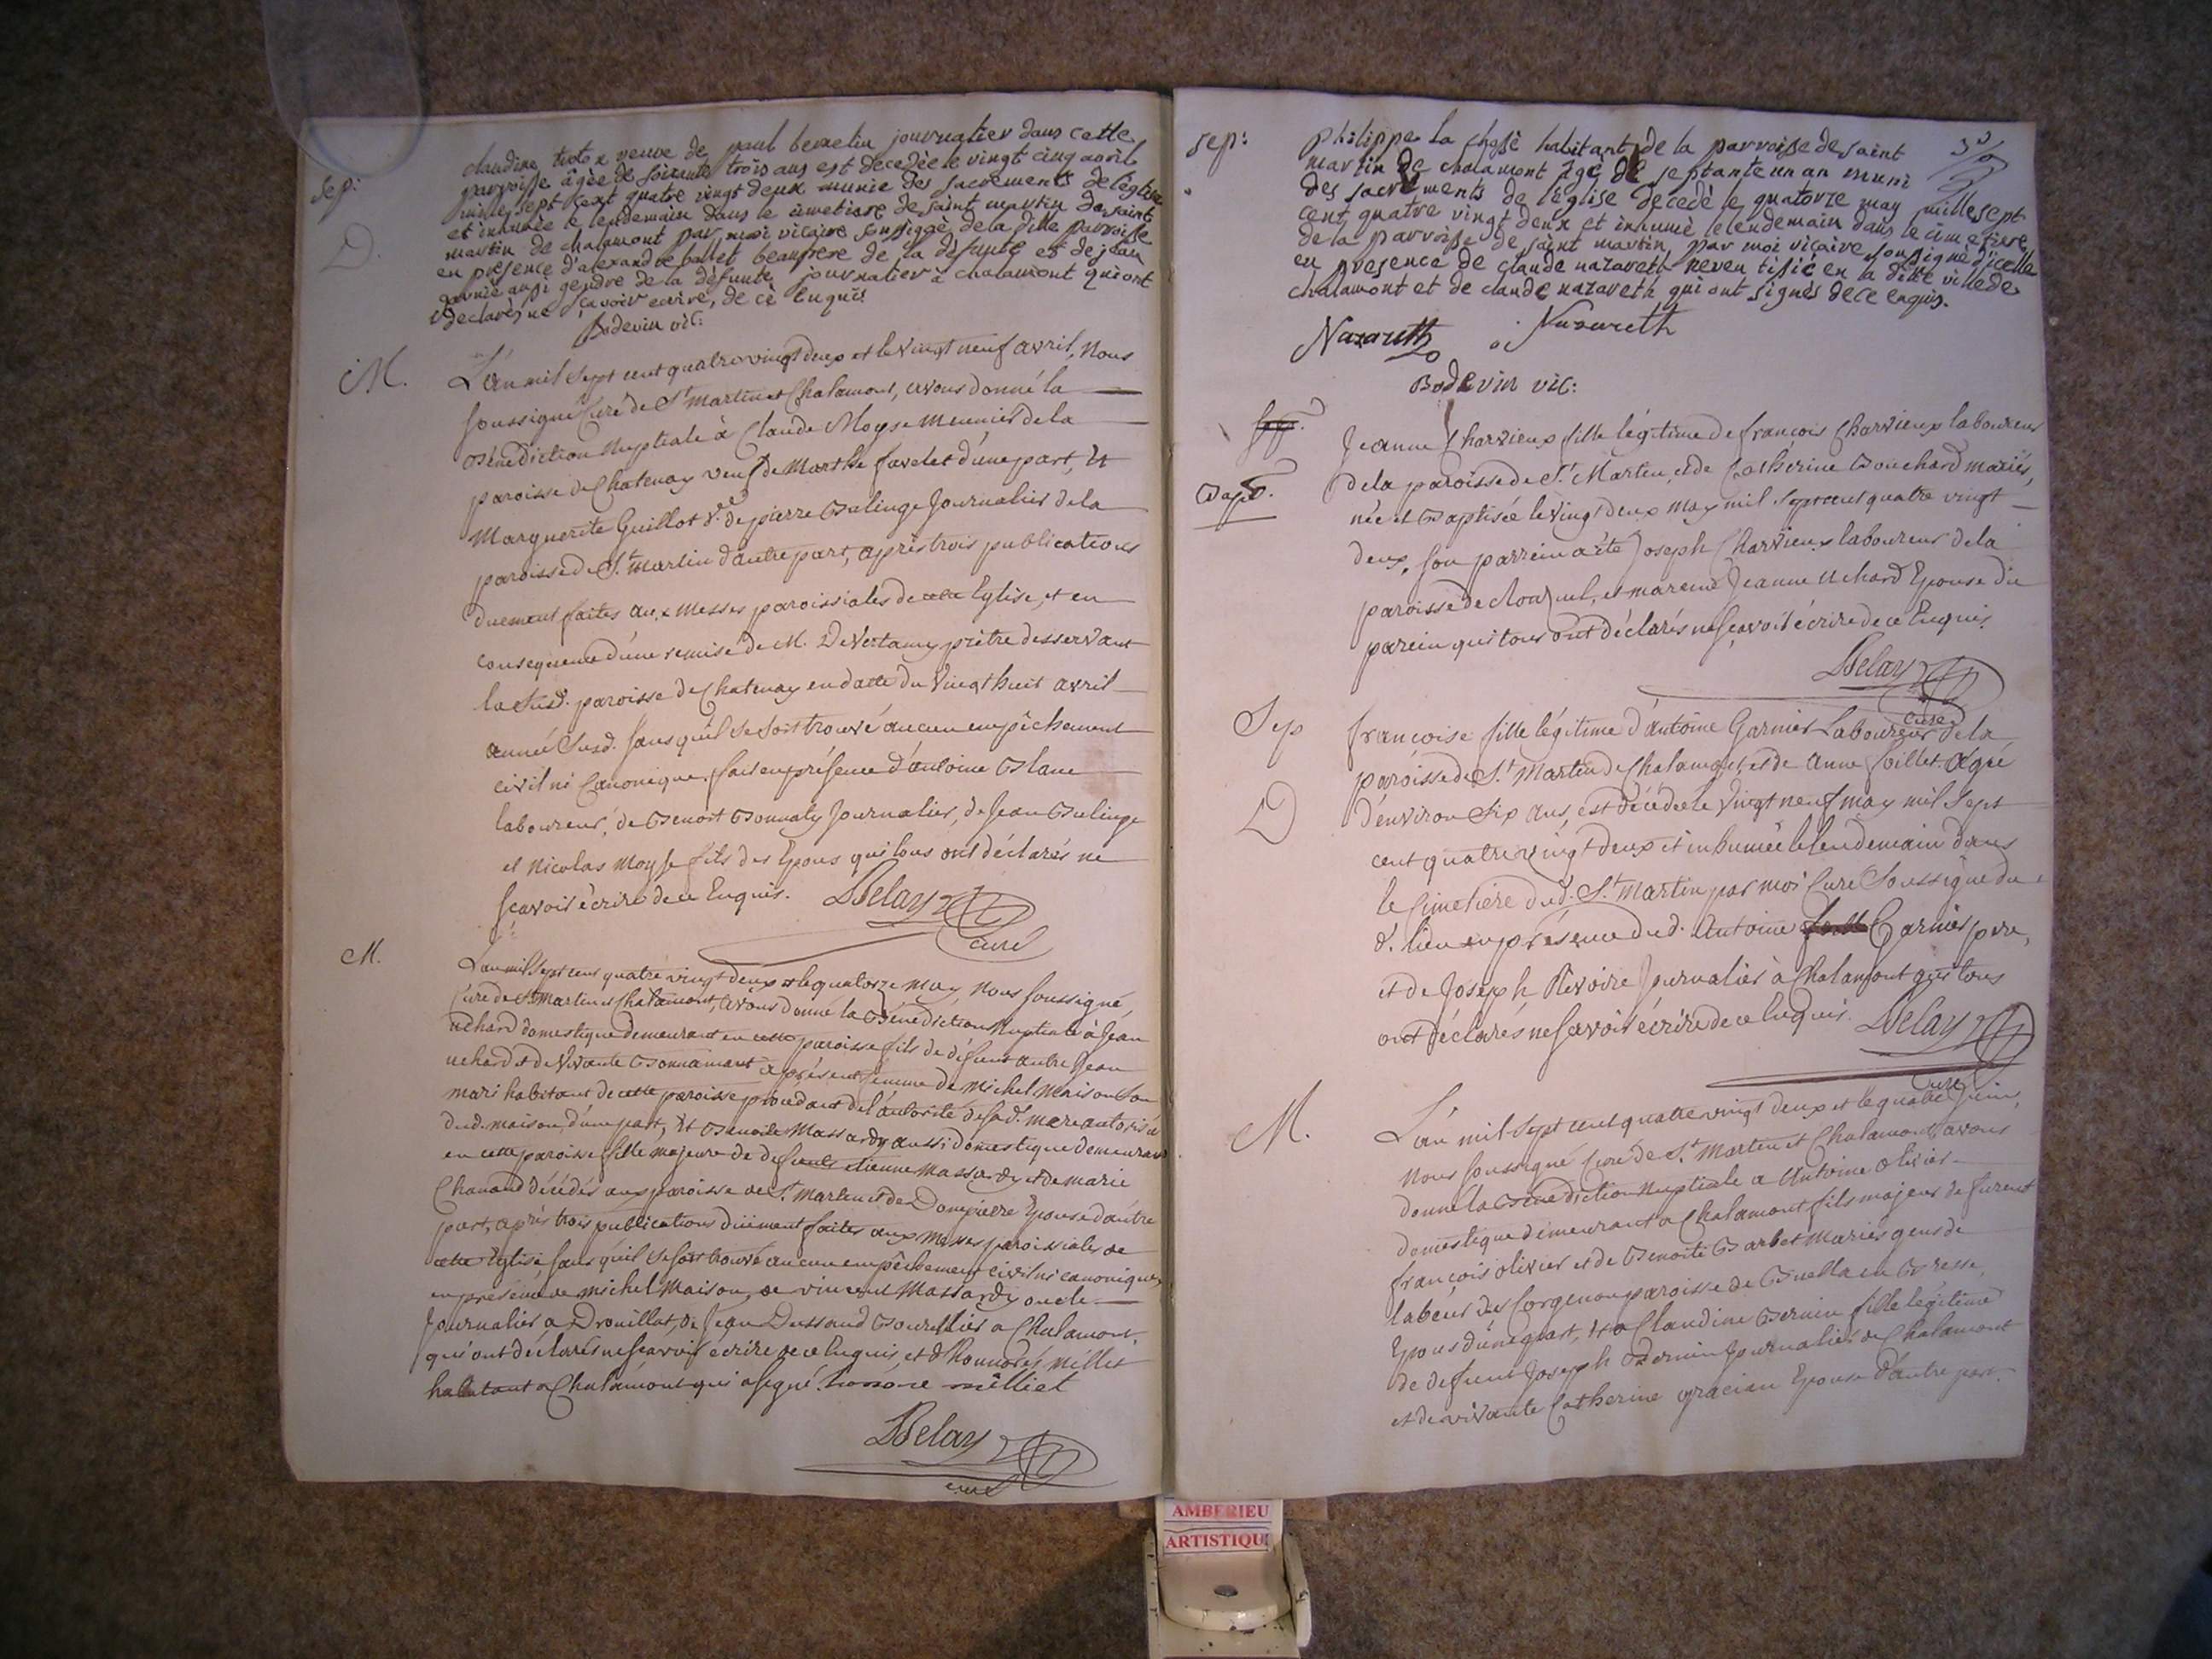 sep:
D.
claudine veuve de paul journalier dans cette
parroisse âgèe de soixante trois ans est decedèe le vingt cinq avril
mille sept cent quatre vingt deux munie des sacrements de l'èglise
et inhumèe le lendemain dans le cimetiere de saint martin de saint
martin de chalamont par moi vicaire soussignè de la ditte parroisse
en prèsence d'alexandre ballet beaufrere de la dèfunte et de jean
garniè aussi gendre de la dèfunte journalier à chalamont qui ont
declarès ne sçavoir ecrire, de ce enquis
Bodevin vic:
M.
L'an mil sept cent quatre vingt deux et le vingt neuf avril, Nous
soussigné Curé de St. Martin et Chalamont, avons donné la
Bénédiction Nuptiale à Claude Moyse meunier de la
paroisse de Chatenay veuf de Marthe favelet d'une part, Et
Marguerite Guillot Ve. de pierre Bulinge Journalier de la
paroisse de St. Martin d'autre part, après trois publications
duement faites aux Messes paroissiales de cette Eglise, et en
consequence d'une remise de M. Devertamy prêtre desservant
la Susd. paroisse de Chatenay en datte du Vingt huit avril
année Susd. sans qu'il se soit trouvé aucun empêchement
civil ni Canonique. fait en présence d'antoine Blanc
laboureur, de Benoit Bonnaty Journalier, de Jean Bulinge
et Nicolas Moyse fils des Epoux qui tous ont déclarés ne
sçavoir écrire de ce Enquis. Delay
curé
M.
L'an mil Sept cent quatre vingt deux et le quatorze may, Nous soussigné
Curé de St. Martin et Chalamont, avons donné la Bénédiction Nuptiale à Jean
uchard domestique demeurant en cette paroisse fils de défunt autre Jean
uchard et de Vivante Bonnamant à présent femme de Michel Maison son
mari habitant de cette paroisse procedant de l'autorité de sad. mere autorisée
dud. maison, d'une part, Et Benoite Massardy aussi domestique demeurant
en cette paroisse fille majeure de defunts etienne Massardy et de marie
Chanand décédés aux paroisse de St. Martin et de Dompierre Epouse d'autre
part, après trois publications dûement faites aux Messes paroissiales de
cette Eglise, sans qu'il se soit trouvé aucun empêchement civil ni canonique,
en présence de michel Maison, de vincent Massardy oncle
Journalier a Drouillat, de Jean Dussaud Bourellier a Chalamont,
qui ont déclarés ne sçavoir écrire de ce Enquis, et d'honnorés milliet
habitant a Chalamont qui a signé. honnore milliet
Delay
curé
sep:
philippe la chose habitant de la parroisse de saint
martin de chalamont âgé de septante un an muni
des sacrements de l'èglise decedè le quatorze may mille sept
cent quatre vingt deux et inhumè le lendemain dans le cimetiere
de la parroisse de saint martin, par moi vicaire soussignè d'icelle
en presence de claude nazareth neveu en la ditte ville de
chalamont et de claude nazareth qui ont signès de ce enquis.
Nazareth Nazareth
Bodevin vic:
Bapt.
Jeanne Charvieux fille légitime de francois Charvieux laboureur
de la paroisse de St. Martin, et de Catherine Bouchard mariés,
née et Baptisée le vingt deux may mil sept cent quatre vingt
deux, son parrein a été Joseph Charvieux laboureur de la
paroisse de et mareine Jeanne uchard Epouse du
parein qui tous ont déclarés ne sçavoir écrire de ce Enquis
Delay
curé
Sep
D
françoise fille légitime d'antoine Garnier Laboureur de la
paroisse de St. Martin de Chalamont, et de Anne Agée
d'environ Six ans, est décédée le vingt neuf may mil Sept
cent quatre vingt deux et inhumée le lendemain dans
le Cimetiere dud. St. Martin par moi Curé Soussigné du
d. lieu en présence dud. Antoine Garnier pere,
et de Joseph Revoire Journalier à Chalamont qui tous
ont déclarés ne sçavoir écrire de ce Enquis. Delay
Curé
M.
L'an mil Sept cent quatre vingt deux et le quatre Juin,
Nous soussigné Curé de St. Martin et Chalamont avons
donné la Bénédiction Nuptiale a Antoine olivier
domestique demeurant a Chalamont fils majeur de furent
françois olivier et de Benoite Barbet Mariés gens de
labeur de Corgenon paroisse de Buella en Bresse,
Epoux d'une part, Et a Claudine Bernin fille légitime
de defunt Joseph Bernin Journalier de Chalamont
et de vivante Catherine gracian Epouse d'autre part.
AMBERIEU
ARTISTIQU